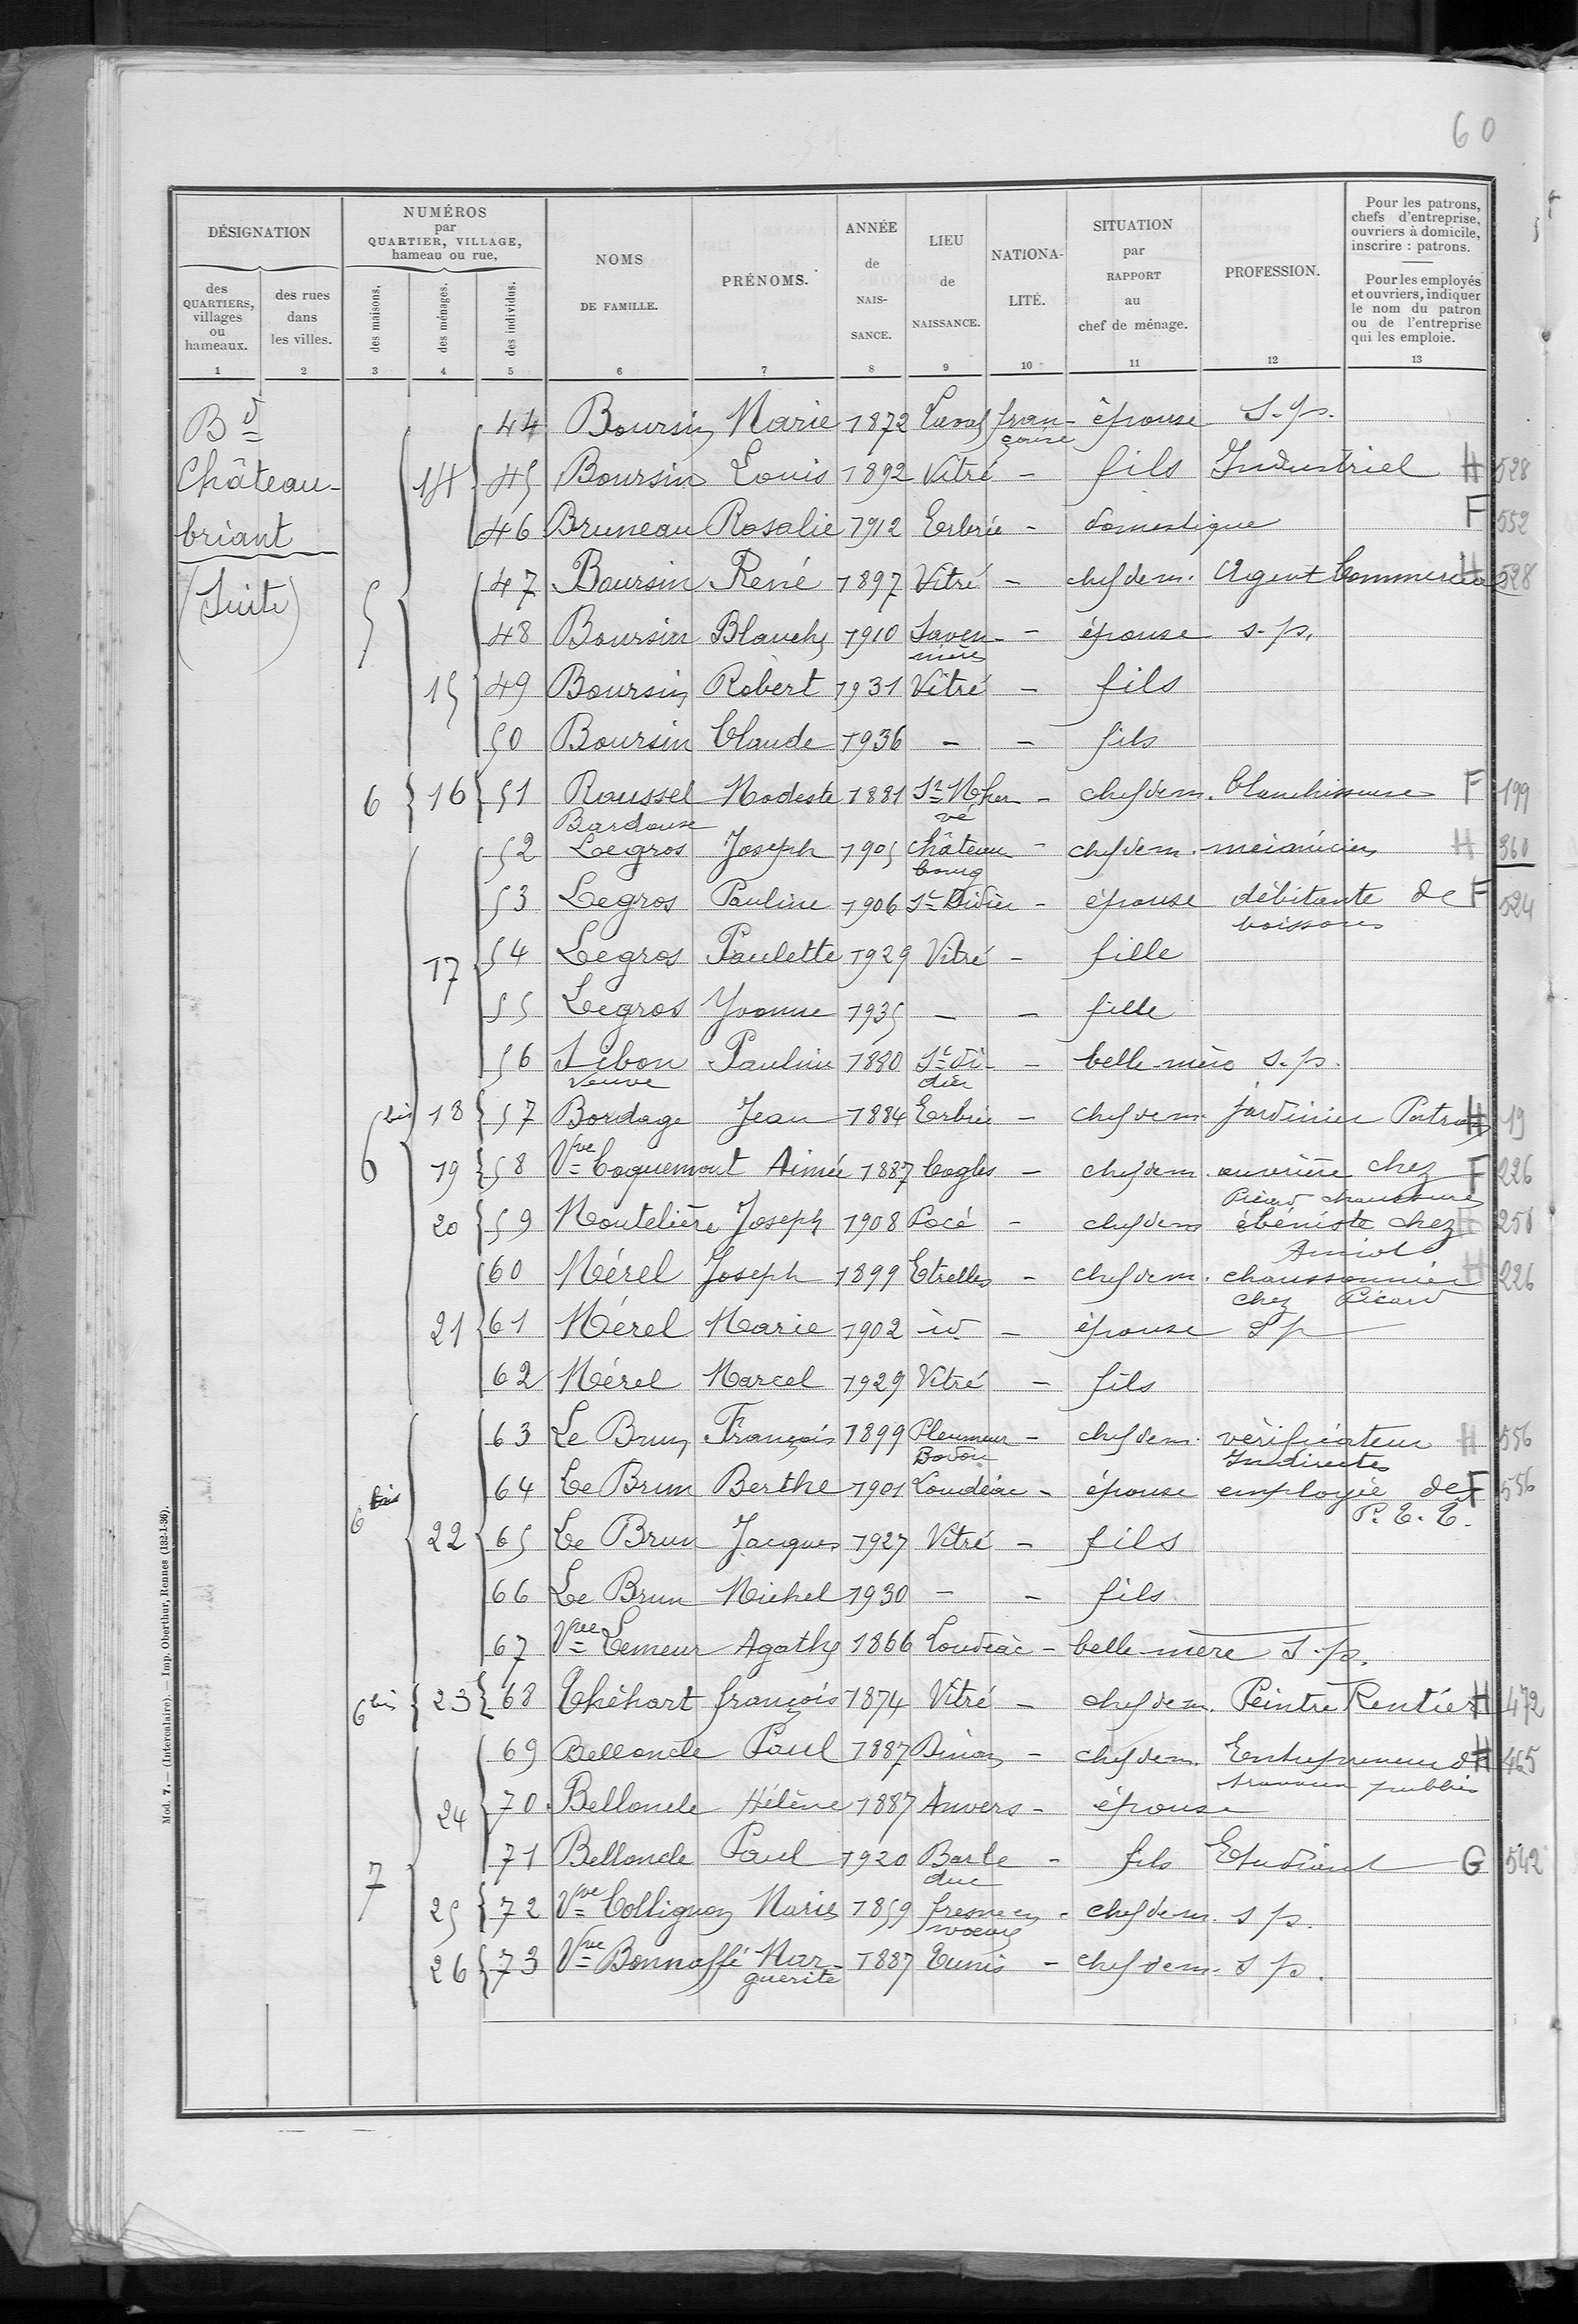 60
DÉSIGNATION
des QUARTIERS, villages ou hameaux.
des rues dans les villes.
NUMÉROS par QUARTIER, VILLAGE, hameau ou rue,
des maisons.
des ménages.
des individus.
NOMS DE FAMILLE.
PRÉNOMS.
ANNÉE de NAISSANCE.
LIEU de NAISSANCE.
NATIONALITÉ.
SITUATION par RAPPORT au chef de ménage.
PROFESSION.
Pour les patrons, chefs d'entreprise, ouvriers à domicile, inscrire : patrons.
Pour les employés et ouvriers, indiquer le nom du patron ou de l'entreprise qui les emploie.
1 2 3 4 5 6 7 8 9 10 11 12 13
Bd Château-briant (Suite)
44 Boursin Marie 1872 Laval fran-çaise épouse s.p.
5 14 45 Boursin Louis 1892 Vitré - fils Industriel H 528
46 Bruneau Rosalie 1912 Erbrée - domestique F 552
47 Boursin René 1897 Vitré - chef de m. Agent Commercial H 528
48 Boursin Blanche 1910 Saven-nières - épouse s.p.
15 49 Boursin Robert 1931 Vitré - fils
50 Boursin Claude 1936 - - fils
6 16 51 Roussel Modeste 1881 St M'Her-vé - chef de m. blanchisseuse F 199
Bardouse
52 Legros Joseph 1905 Château-bourg - chef de m. mécanicien H 360
53 Legros Pauline 1906 St Didier - épouse débitante de boissons F 524
17 54 Legros Paulette 1929 Vitré - fille
55 Legros Yvonne 1935 - - fille
56 Sibon Veuve Pauline 1880 St Di-dier - belle-mère s.p.
6 bis 18 57 Bordage Jean 1884 Erbrée - chef de m. jardinier Patron H 19
19 58 Vve Coquemont Aimée 1887 Cogles - chef de m. ouvrière chez Picard chaussures F 226
20 59 Moutelière Joseph 1908 Pocé - chef de m ébéniste chez Amiot H 250
60 Mérel Joseph 1899 Etrelles - chef de m. chaussonnier chez Picard H 226
21 61 Mérel Marie 1902 id - épouse s p
62 Mérel Marcel 1929 Vitré - fils
63 Le Brun François 1899 Pleumeur Bodou - chef de m. vérificateur Indirectes H 556
6 bis 64 Le Brun Berthe 1901 Loudéac - épouse employée des P.T.T. F 556
22 65 Le Brun Jacques 1927 Vitré - fils
66 Le Brun Michel 1930 - - fils
67 Vve Lemeur Agathe 1866 Loudéac - belle-mère s.p.
6 bis 23 68 Théhart françois 1874 Vitré - chef de m. Peintre Rentier H 472
69 Belloncle Paul 1887 Dinan - chef de m. Entrepreneur de travaux publics H 465
24 70 Belloncle Hélène 1887 Anvers - épouse
7 71 Belloncle Paul 1920 Bar le duc - fils Etudiant G 542
25 72 Vve Collignon Marie 1859 fresne en woevre - chef de m. s p.
26 73 Vve Bonnaffé Mar-guerite 1887 Tunis - chef de m. s p.
Mod. 7. — (Intercalaire). — Imp. Oberthur, Rennes (132-1-36).